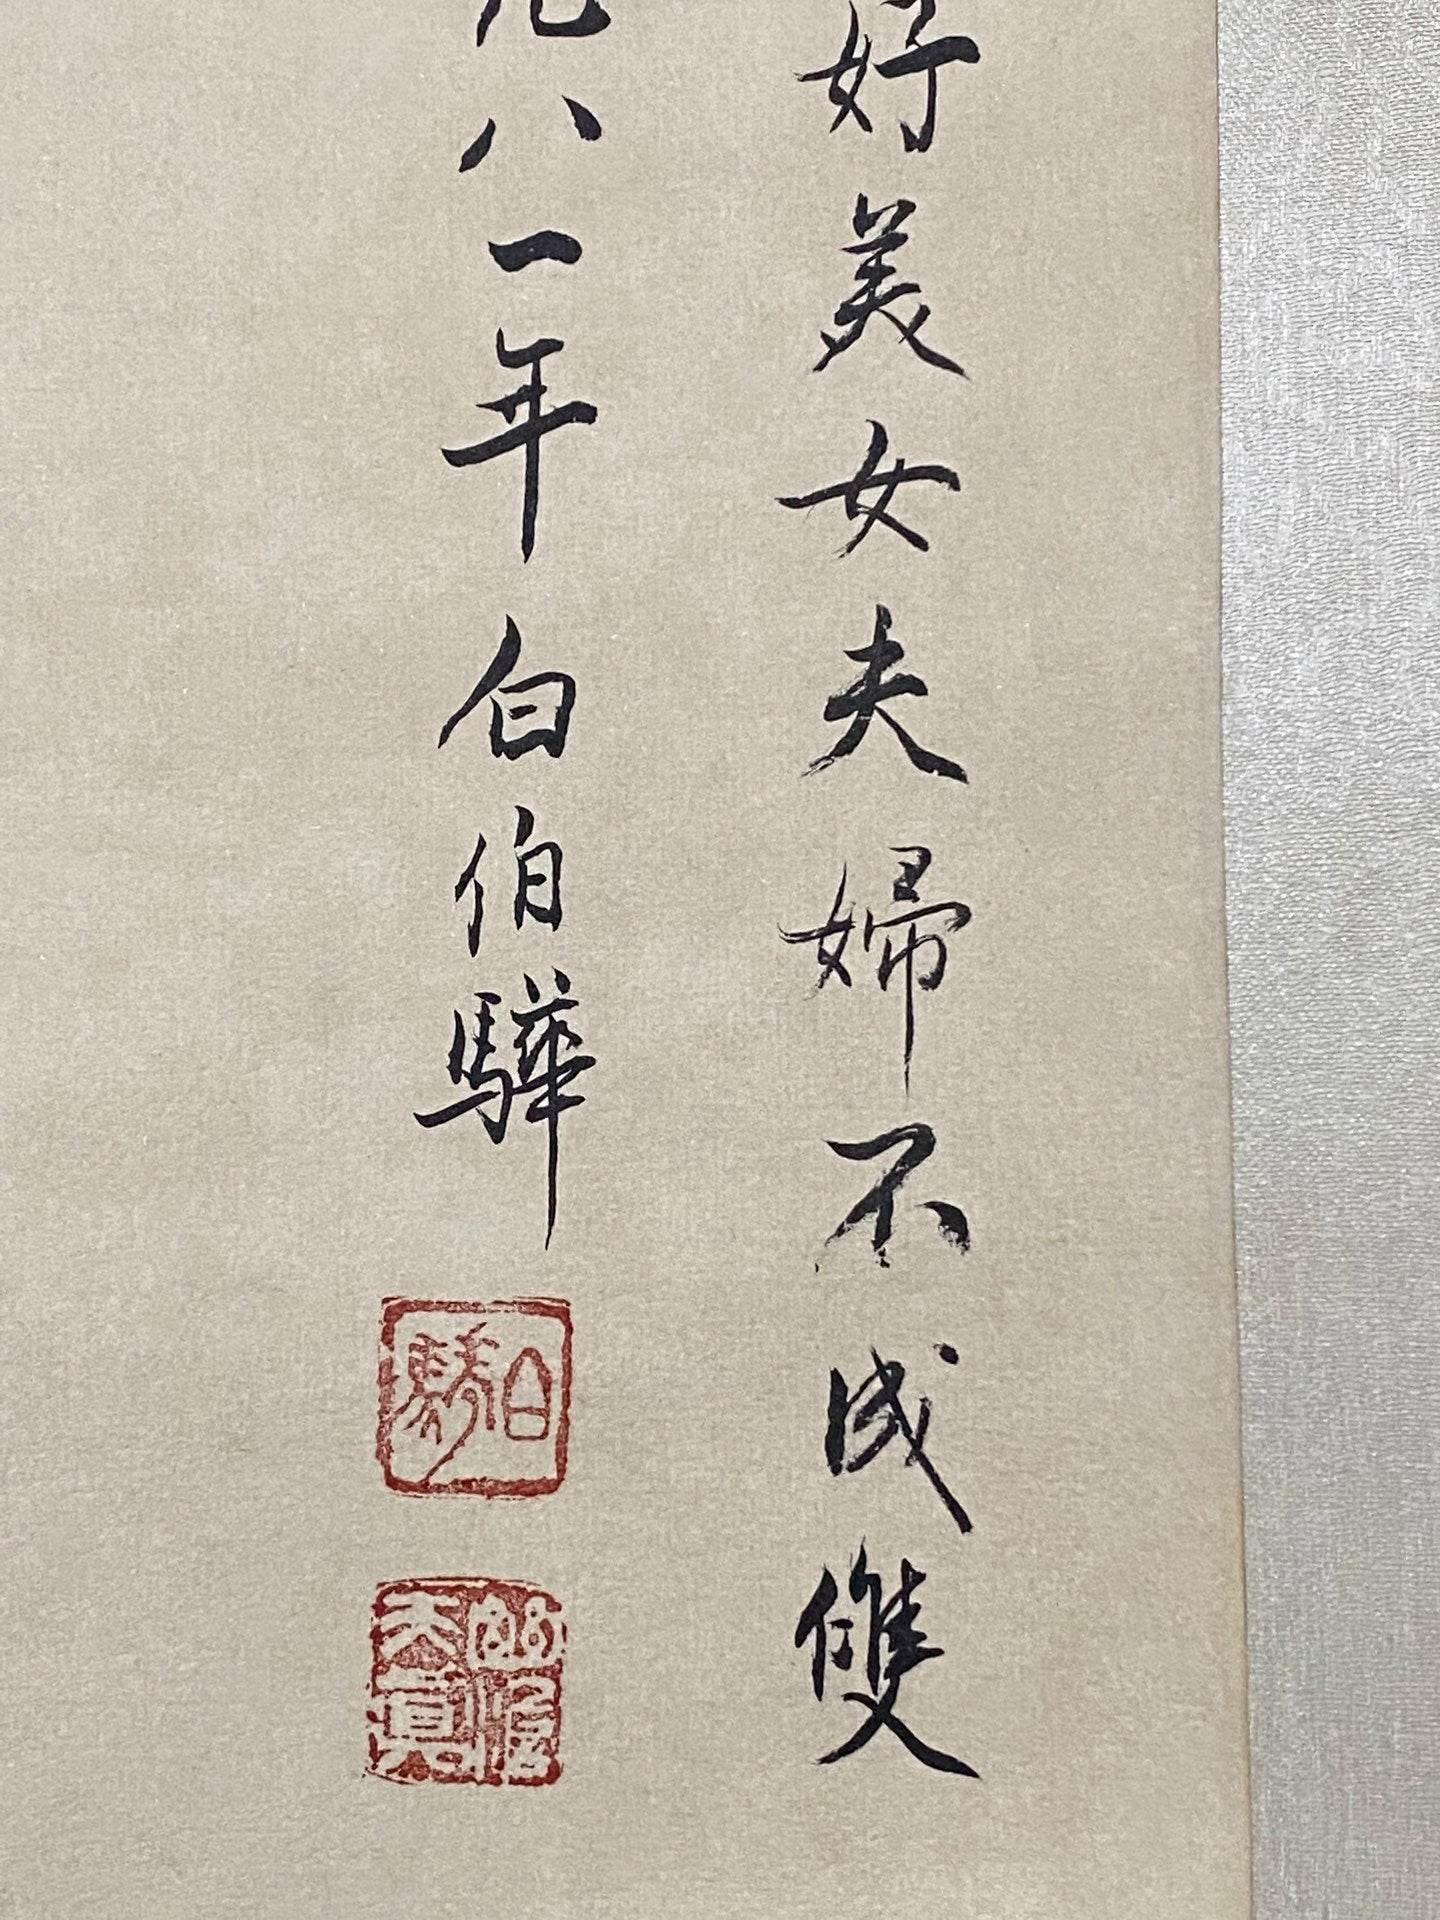 好美女夫婦不成雙
九八一年白伯驊
白驊
天真